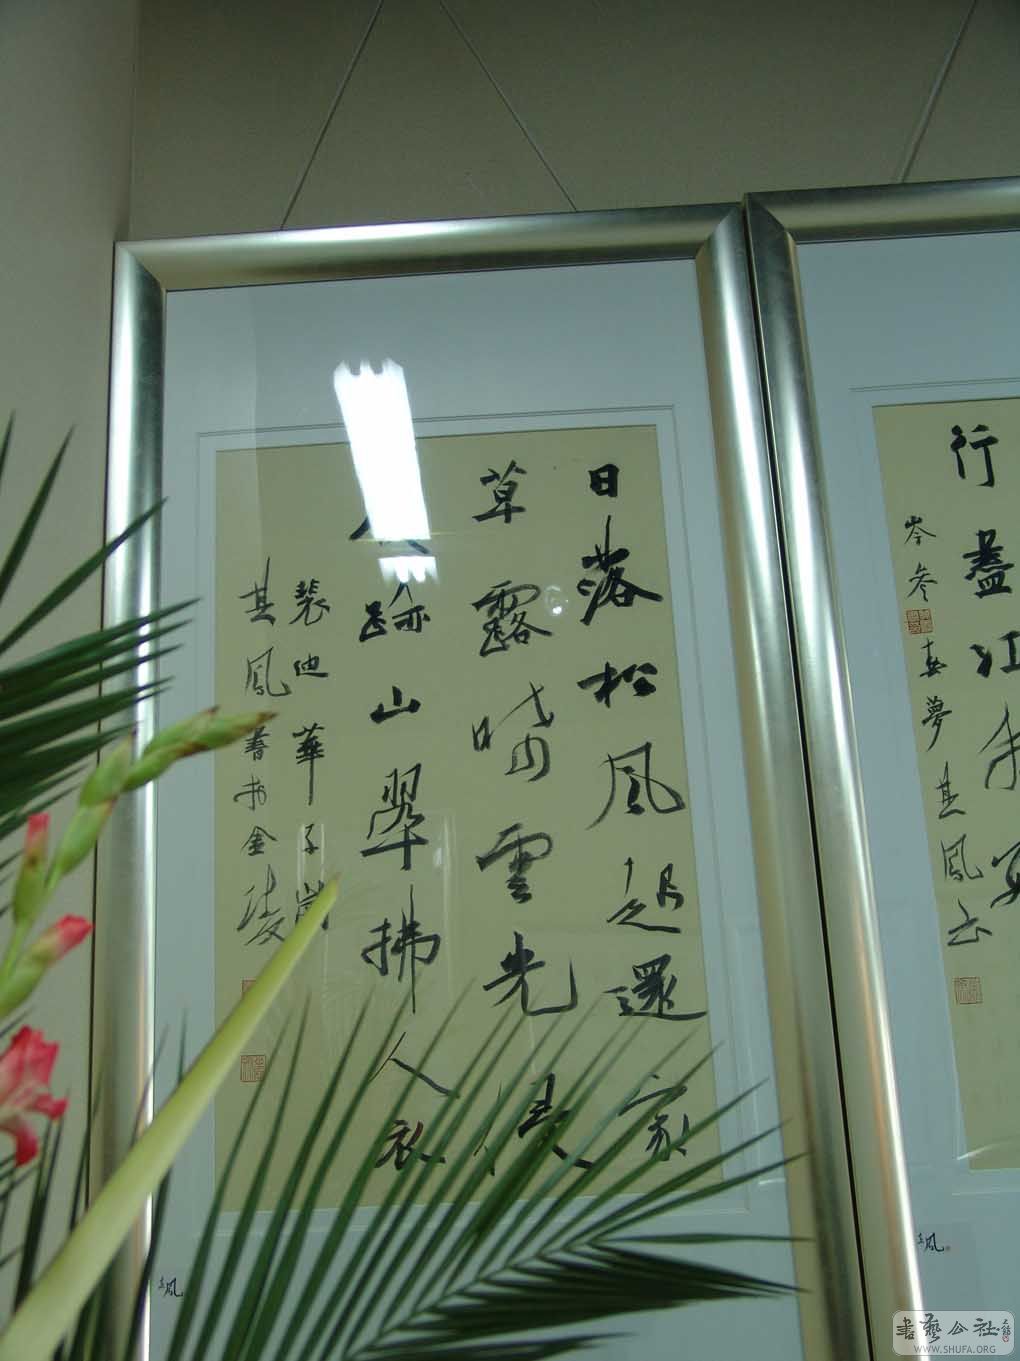 日落松風起還家
草露晞雲光侵
跡山翠拂人衣
裴迪華子崗
其鳳書於金陵
行盡江
岑參春夢其鳳
書藝公社
WWW.SHUFA.ORG